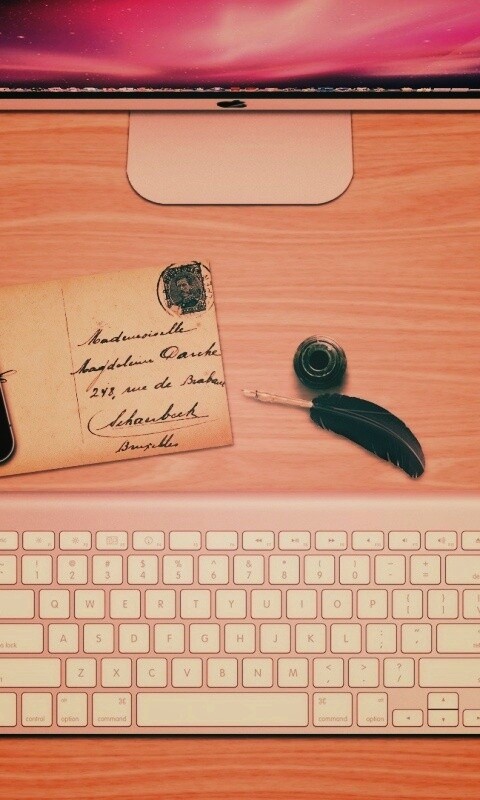 Mademoiselle
248, rue de Braban
Bruxelles
! @ # $ % ^ & * ( ) - +
1 2 3 4 5 6 7 8 9 0 =
Q W E R T Y U I O P { }
[ ]
A S D F G H J K L : "
; '
Z X C V B N M < > ?
, . /
control option command command option